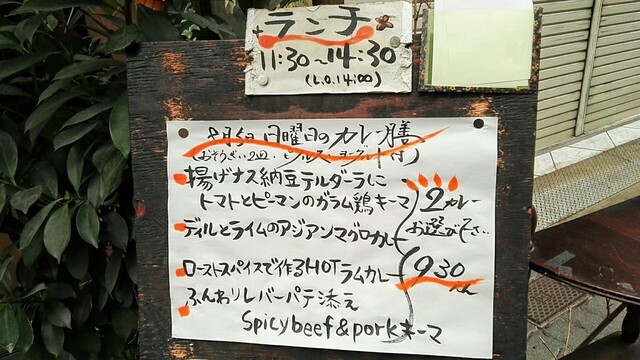 ランチ
11:30〜14:30
(L.O.14:00)
8月5日 日曜日のカレー膳
(おそうざい2品・ピクルス・ヨーグルト付)
揚げナス納豆テルダーラに
トマトとピーマンのガラム鶏キーマ
ディルとライムのアジアンマグロカレー
ローストスパイスで作るHOTラムカレー
ふんわりレバーパテ添え
Spicybeef&porkキーマ
2カレー
お選び下さい
930